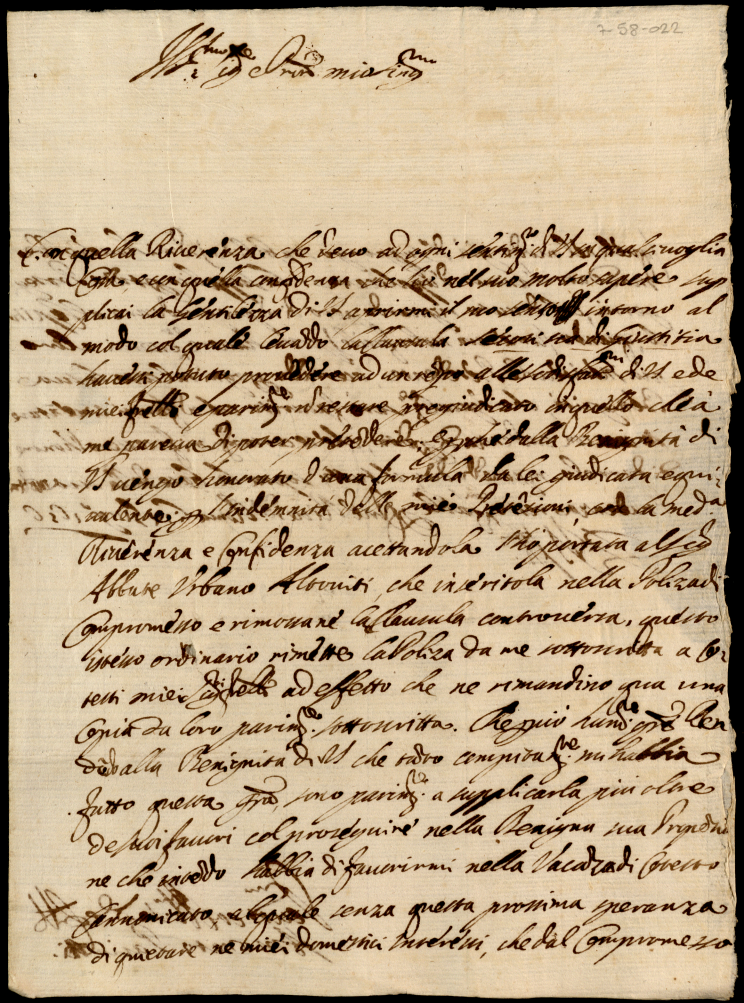 7-58-022
Ill.mo Sig. e P.ron mio Sing.mo
Con quella Riverenza che devo ad ogni di V.S. in qualsivoglia
cosa e con quella confidenza che hò nel suo molto sapere sup
plicai la Gentilezza di V.S. a dirmi il suo senso intorno al
modo col quale levando la Clausula di Giustitia
havessi potuto provedere ad un di V.S. e de
miei e parim.te restare pregiudicato in quello che à
me pareva di poter pretendere. dalla Benignità di
V.S. vengo honorato d'una formula da lei giudicata equi-
valente per Indennità delle mie Pretensioni con la med.a
Riverenza e Confidenza accettandola l'hò portata al Sig.
Abbate Urbano Altoviti, che inseritola nella Poliza di
Compromesso e rimossane la Clausula controversa, questo
istesso ordinario rimette la Poliza da me sottoscritta a Co-
testi miei Sig.ri fratelli ad effetto che ne rimandino qua una
Copia da loro parim.te sottoscritta. Che però hum. gra Ren
do alla Benignità di V.S. che tanto compitam.te mi habbia
fatto questa gra, sono parim.te a supplicarla più oltre
de suoi favori col proseguire nella Benigna sua
ne che intendo habbia di favorirmi nella Vacanza di Cotesto
Canonicato senza questa prossima speranza
di quietare ne miei domestici Interessi, che dal Compromesso